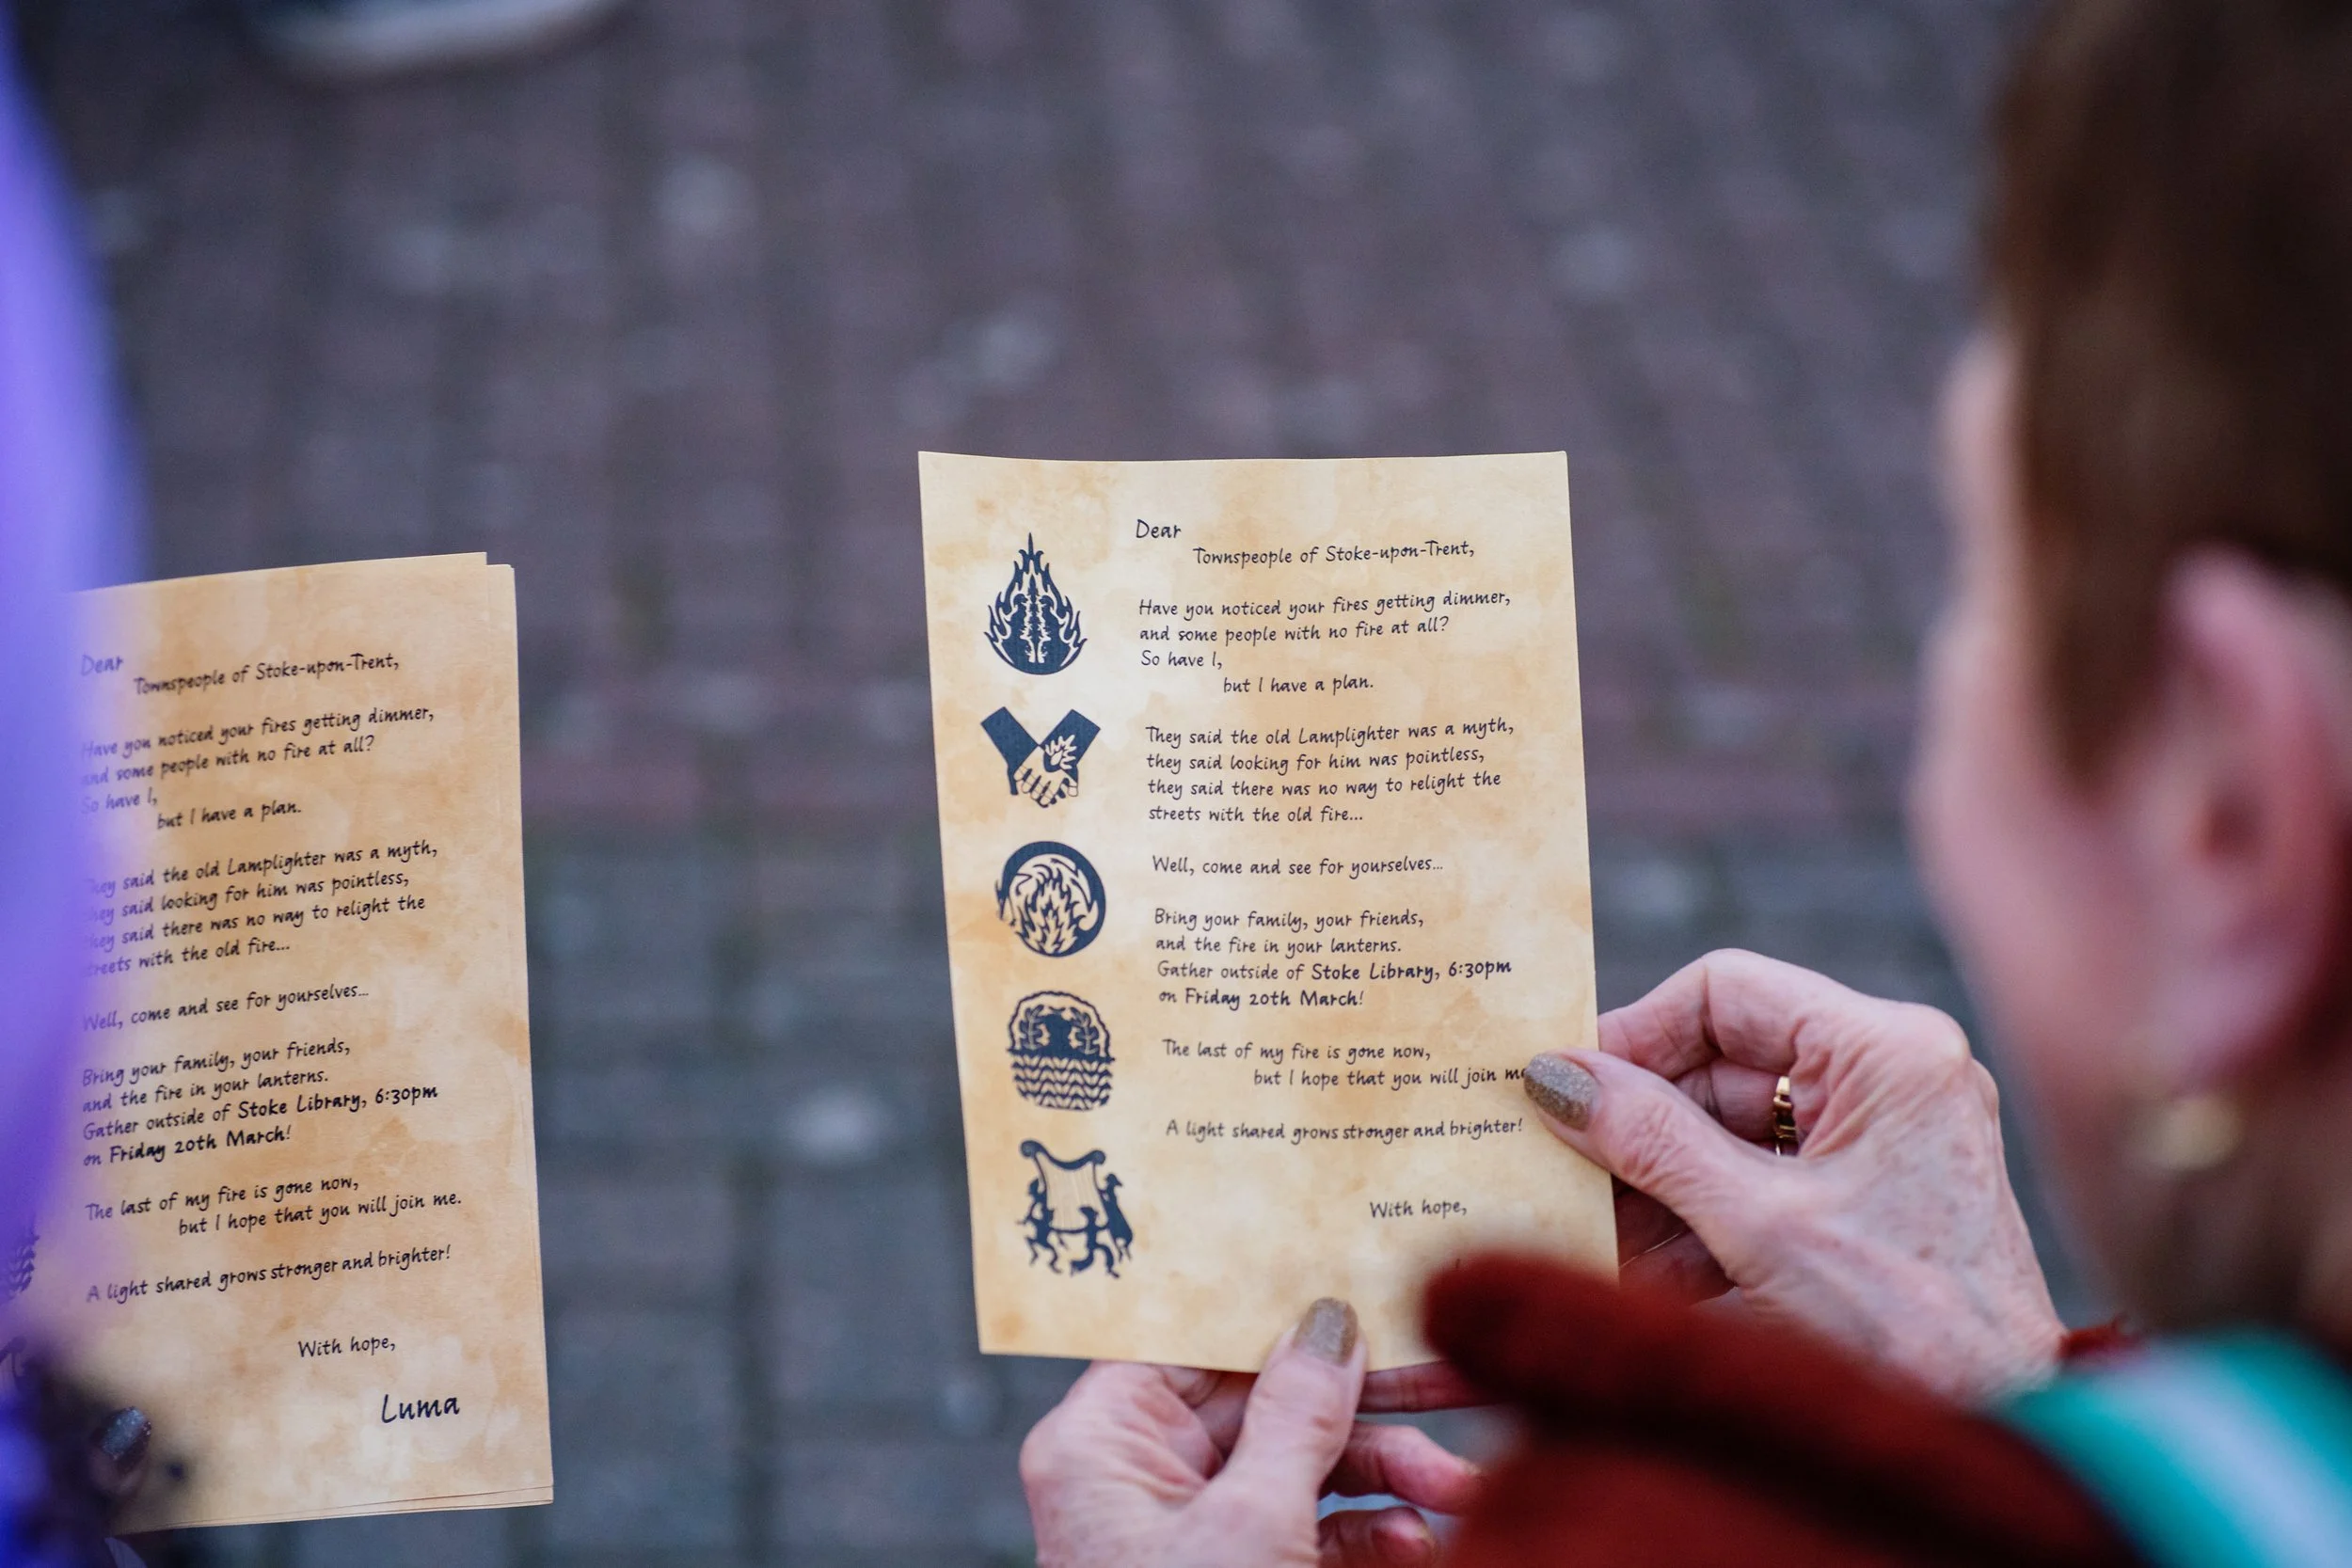 Dear
Townspeople of Stoke-upon-Trent,
Have you noticed your fires getting dimmer,
and some people with no fire at all?
So have I,
but I have a plan.
They said the old Lamplighter was a myth,
they said looking for him was pointless,
they said there was no way to relight the
streets with the old fire...
Well, come and see for yourselves...
Bring your family, your friends,
and the fire in your lanterns.
Gather outside of Stoke Library, 6:30pm
on Friday 20th March!
The last of my fire is gone now,
but I hope that you will join me.
A light shared grows stronger and brighter!
With hope,
Luma
Dear
Townspeople of Stoke-upon-Trent,
Have you noticed your fires getting dimmer,
and some people with no fire at all?
So have I,
but I have a plan.
They said the old Lamplighter was a myth,
they said looking for him was pointless,
they said there was no way to relight the
streets with the old fire...
Well, come and see for yourselves...
Bring your family, your friends,
and the fire in your lanterns.
Gather outside of Stoke Library, 6:30pm
on Friday 20th March!
The last of my fire is gone now,
but I hope that you will join me
A light shared grows stronger and brighter!
With hope,